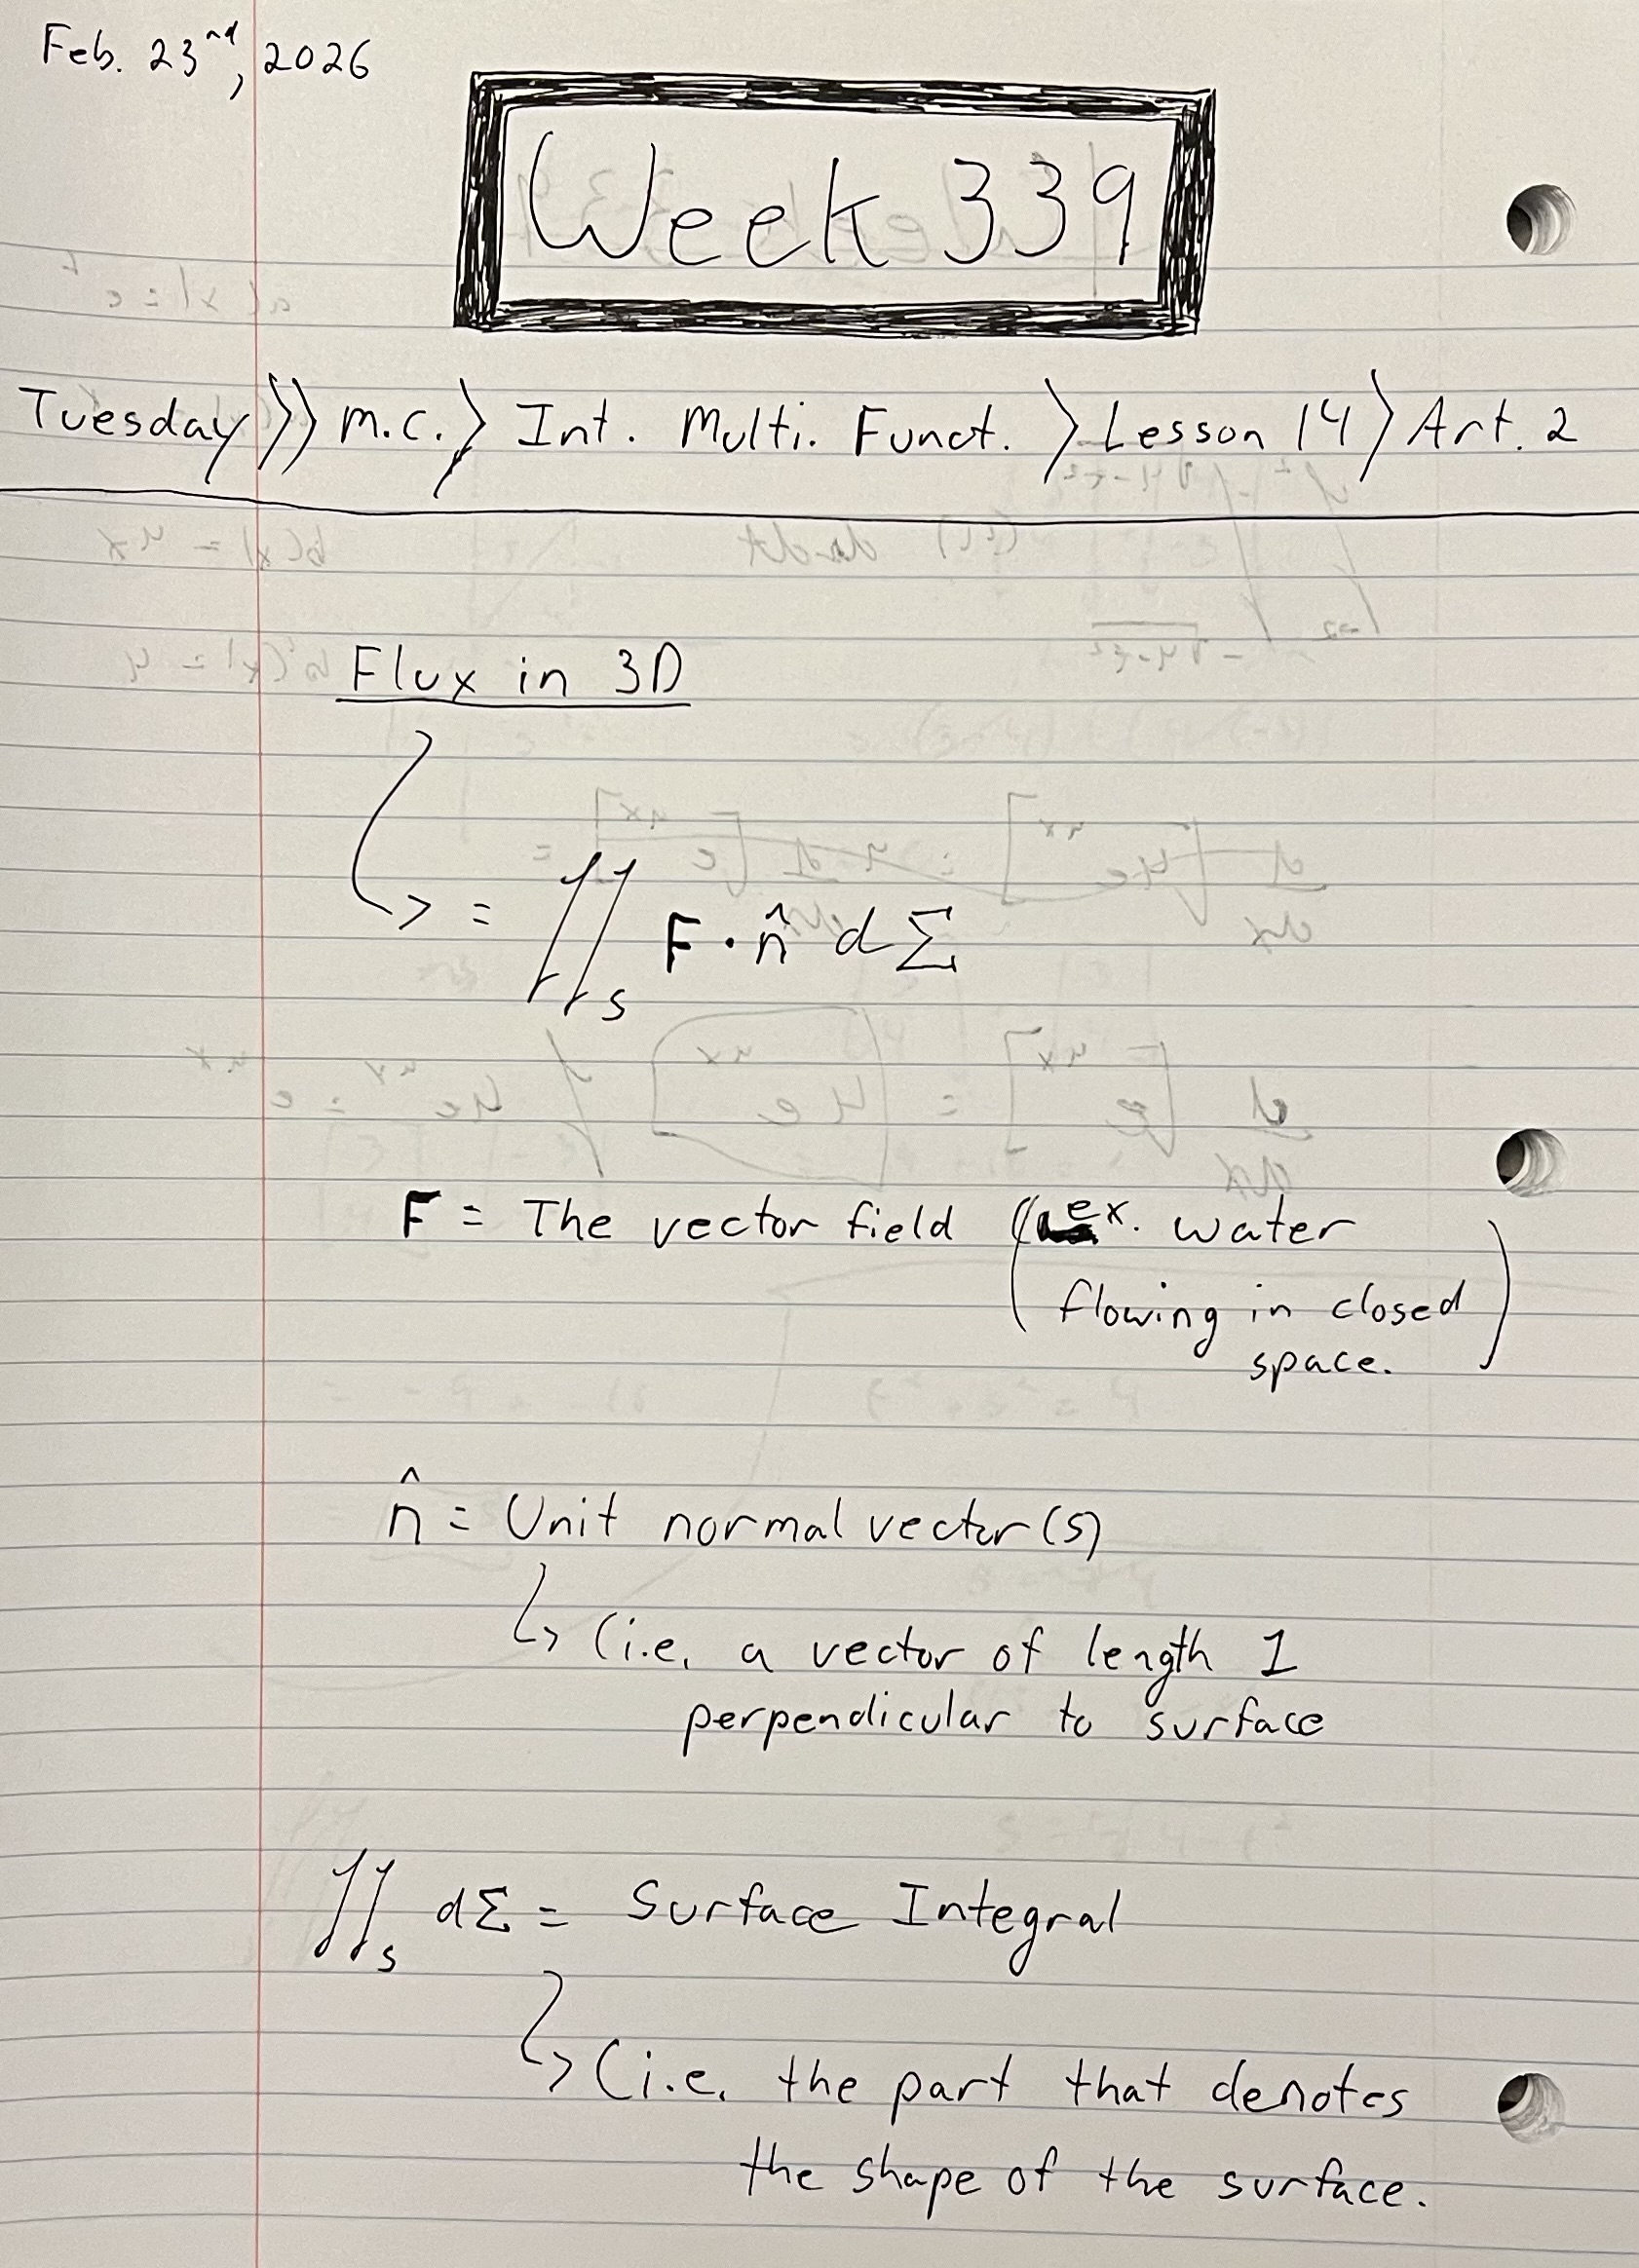 Feb. 23nd, 2026
Week 339
Tuesday >> M.C. > Int. Multi. Funct. > Lesson 14 > Art. 2
Flux in 3D
= ∬_S F · n̂ dΣ
F = The vector field (ex. water
flowing in closed
space.)
n̂ = Unit normal vector(s)
↳ (i.e. a vector of length 1
perpendicular to surface
∬_S dΣ = Surface Integral
↳ (i.e. the part that denotes
the shape of the surface.